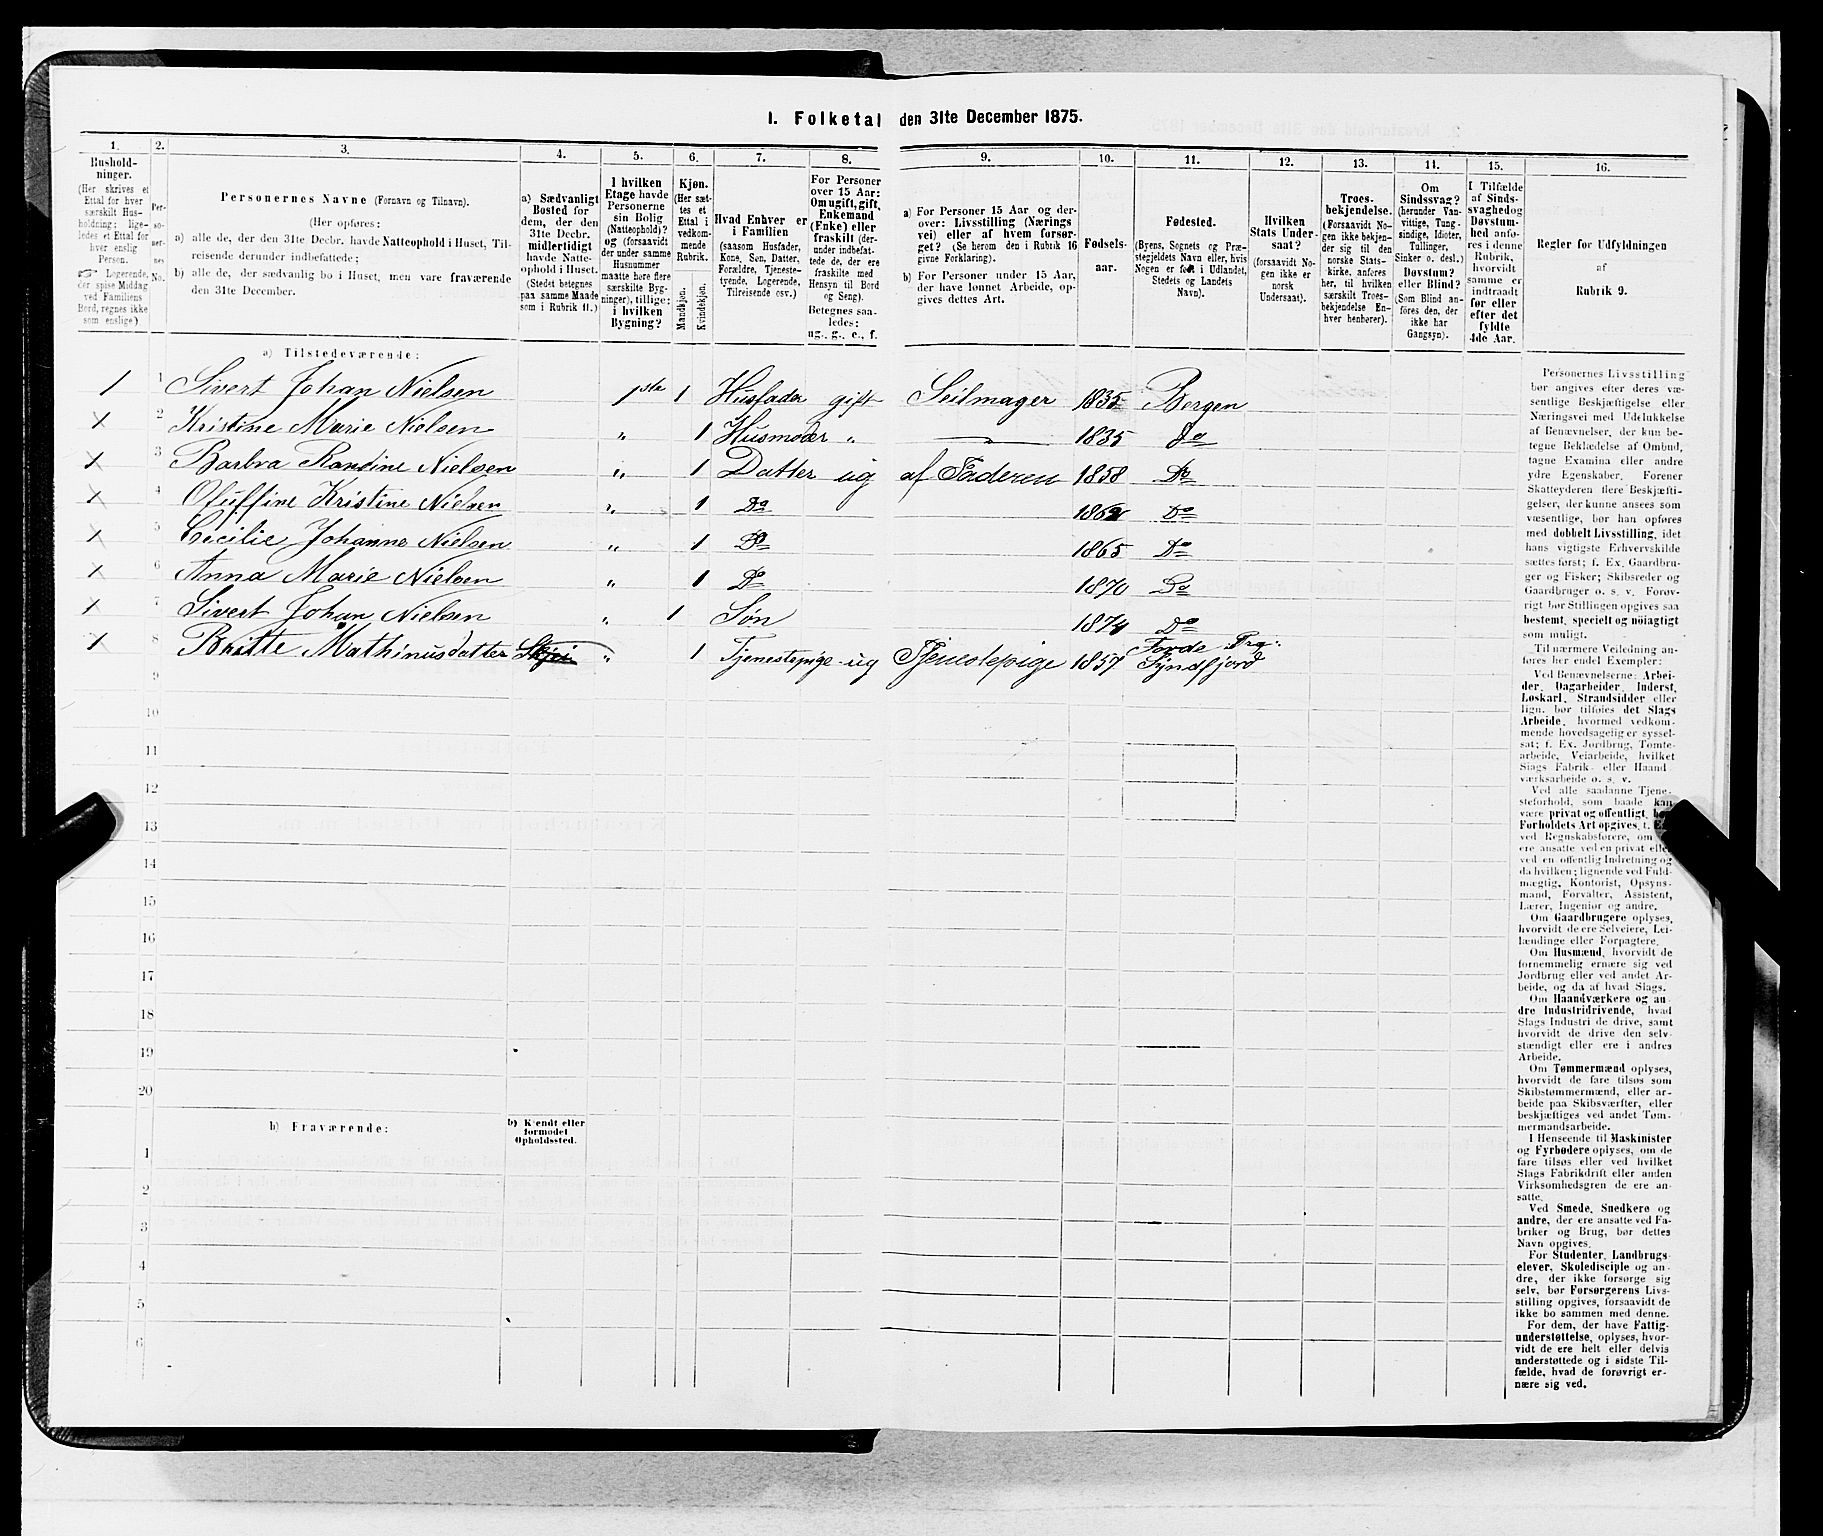 1. Folketal den 31te December 1875.
1.
Husholdninger.
(Her skrives et
Ettal for hver
særskilt Husholdning; ligeledes et Ettal for
hver enslig
Person.
☞ Logerende,
der spise Middag
ved Familiens
Bord, regnes ikke
som enslige.)
2.
Personernes
No.
3.
Personernes Navne (Fornavn og Tilnavn).
(Her opføres:
a) alle de, der den 31te Decbr. havde Natteophold i Huset, Tilreisende derunder indbefattede;
b) alle de, der sædvanlig bo i Huset, men vare fraværende
den 31te December.
4.
a) Sædvanligt
Bosted for
dem, der den
31te Decbr.
midlertidigt
havde Natteophold i Huset.
(Stedet betegnes
paa samme Maade
som i Rubrik 11.)
5.
I hvilken
Etage havde
Personerne
sin Bolig
(Natteophold)?
og (forsaavidt
der under samme
Husnummer
maatte høre flere
særskilte Bygninger), tillige:
i hvilken
Bygning?
6.
Kjøn.
(Her sættes et
Ettal i
vedkommende
Rubrik.
Mandkjøn.
Kvindekjøn.
7.
Hvad Enhver er
i Familien
(saasom Husfader,
Kone, Søn, Datter,
Forældre, Tjenestetyende, Logerende,
Tilreisende osv.)
8.
For Personer
over 15 Aar:
Om ugift, gift,
Enkemand
(Enke) eller
fraskilt (derunder indbefattede de, der ere
fraskilte med
Hensyn til Bord
og Seng).
Betegnes saaledes:
ug., g., e., f.
9.
a) For Personer 15 Aar og derover: Livsstilling (Næringsvei) eller af hvem forsørget? (Se herom den i Rubrik 16
givne Forklaring).
b) For Personer under 15 Aar,
der have lønnet Arbeide, opgives dettes Art.
10.
Fødselsaar.
11.
Fødested.
(Byens, Sognets og Præstegjeldets Navn eller, hvis
Nogen er født i Udlandet,
Stedets og Landets
Navn).
12.
Hvilken
Stats Undersaat?
(forsaavidt Nogen ikke er
norsk
Undersaat).
13.
Troesbekjendelse.
(Forsaavidt Nogen ikke bekjender sig til den
norske Statskirke, anføres
her, til hvilken
særskilt Troesbekjendelse Enhver henhører).
14.
Om
Sindssvag?
(herunder Vanvittige, Tungsindige, Idioter,
Tullinger,
Sinker o. desl.)
Døvstum?
eller Blind?
(Som Blind anføres den, der
ikke har
Gangsyn).
15.
I Tilfælde
af Sindssvaghed og
Døvstumhed anføres i denne
Rubrik,
hvorvidt
samme er
indtraadt
før eller
efter det
fyldte
4de Aar.
16.
Regler for Udfyldningen
af
Rubrik 9.
a) Tilstedeværende:
1 1 Sivert Johan Nielsen 1ste 1 Husfader gift Seilmager 1835 Bergen
1 2 Kristine Marie Nielsen " 1 Husmoder " 1835 Do
1 3 Barbra Randine Nielsen " 1 Datter ug af Faderen 1858 Do
1 4 Oluffine Kristine Nielsen " 1 Do 1862 Do
1 5 Cicilie Johanne Nielsen " 1 Do 1865 Do
1 6 Anna Marie Nielsen " 1 Do 1870 Do
1 7 Sivert Johan Nielsen " 1 Søn 1874 Do
1 8 Britte Mathinusdatter Skjei " 1 Tjenestepige ug Tjenestepige 1857 Førde Prg:
Syndfjord
9
10
11
12
13
14
15
16
17
18
19
20
b) Fraværende:
b) Kjendt eller
formodet
Opholdssted.
1
2
3
4
5
6
Personernes Livsstilling
bør angives efter deres væsentlige Beskjæftigelse eller
Næringsvei med Udelukkelse
af Benævnelser, der kun betegne Beklædelse af Ombud,
tagne Examina eller andre
ydre Egenskaber. Forener
Skatteyderen flere Beskjæftigelser, der kunne ansees som
væsentlige, bør han opføres
med dobbelt Livsstilling, idet
hans vigtigste Erhvervskilde
sættes først; f. Ex. Gaardbruger og Fisker; Skibsreder og
Gaardbruger o. s. v. Forøvrigt bør Stillingen opgives saa
bestemt, specielt og nøiagtigt
som muligt.
Til nærmere Veiledning anføres her endel Exempler:
Ved Benævnelserne: Arbeider, Dagarbeider, Inderst,
Løskarl, Strandsidder eller
lign. bør tilføies det Slags
Arbeide, hvormed vedkommende hovedsagelig er sysselsat; f. Ex. Jordbrug, Tømtearbeide, Veiarbeide, hvilket
Slags Fabrik- eller Haandværksarbeide o. s. v.
Ved alle saadanne Tjenesteforhold, som baade kan
være privat og offentligt, bør
Forholdets Art opgives, f. Ex.
ved Regnskabsførere, om de
ere ansatte ved en privat eller
ved en offentlig Indretning og
da hvilken; lignende ved Fuldmægtig, Kontorist, Opsynsmand, Forvalter, Assistent,
Lærer, Ingeniør og andre.
Om Gaardbrugere oplyses,
hvorvidt de ere Selveiere, Leilændinge eller Forpagtere.
Om Husmænd, hvorvidt de
fornemmelig ernære sig ved
Jordbrug eller ved andet Arbeide, og da af hvad Slags.
Om Haandværkere og andre Industridrivende, hvad
Slags Industri de drive, samt
hvorvidt de drive den selvstændigt eller ere i andres
Arbeide.
Om Tømmermænd oplyses,
hvorvidt de fare tilsøs som
Skibstømmermænd, eller arbeide paa Skibsværfter, eller
beskjæftiges ved andet Tømmermandsarbeide.
I Henseende til Maskinister
og Fyrbødere oplyses, om de
fare tilsøs eller ved hvilket
Slags Fabrikdrift eller anden
Virksomhedsgren de ere ansatte.
Ved Smede, Snedkere og
andre, der ere ansatte ved Fabriker og Brug, bør dettes
Navn opgives.
For Studenter, Landbrugselever, Skoledisciple og andre, der ikke forsørge sig
selv, bør Forsørgerens Livsstilling opgives, forsaavidt de
ikke bo sammen med denne.
For dem, der have Fattigunderstøttelse, oplyses, hvorvidt de ere helt eller delvis
understøttede og i sidste Tilfælde, hvad de forøvrigt ernære sig ved.